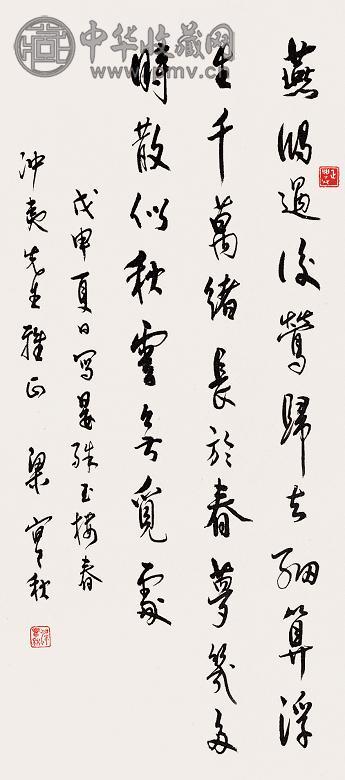 中华收藏网
www.pmv.cn
燕鴻過後鶯歸去細算浮
生千萬緒長於春夢幾多
時散似秋雲無覓處
戊申夏日寫晏殊玉樓春
冲夷先生雅正 梁實秋